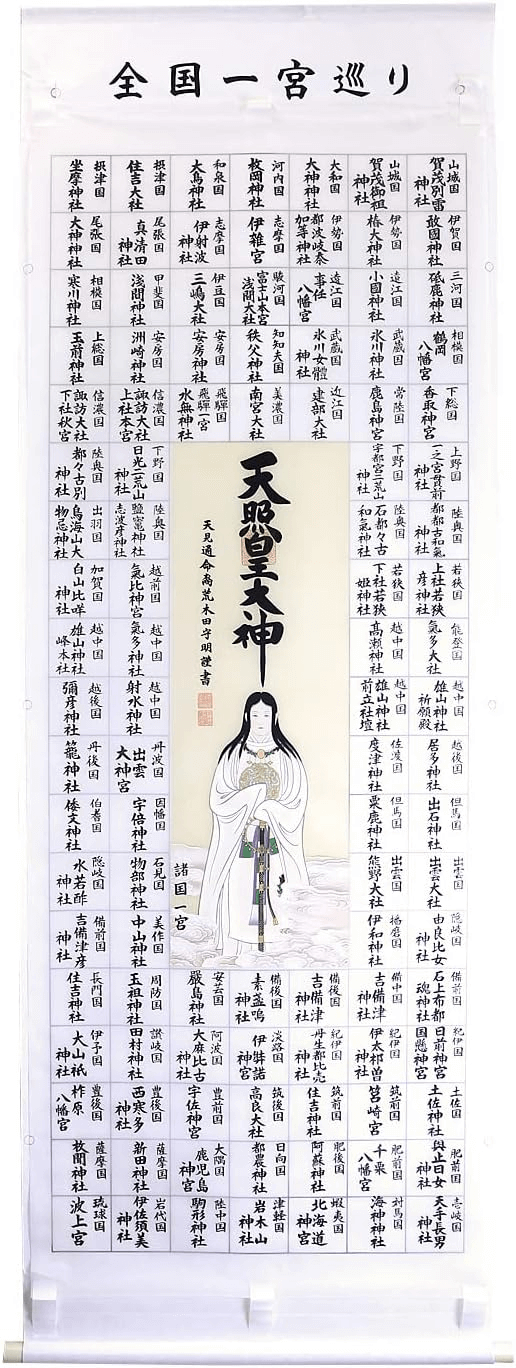 全国一宮巡り
山城国
賀茂別雷
神社
山城国
賀茂御祖
神社
大和国
大神神社
河内国
枚岡神社
和泉国
大鳥神社
摂津国
住吉大社
摂津国
坐摩神社
伊賀国
敢國神社
伊勢国
椿大神社
伊勢国
都波岐奈
加等神社
志摩国
伊雜宮
志摩国
伊射波
神社
尾張国
真清田
神社
尾張国
大神神社
三河国
砥鹿神社
遠江国
小國神社
遠江国
事任
八幡宮
駿河国
富士山本宮
浅間大社
伊豆国
三嶋大社
甲斐国
浅間神社
相模国
寒川神社
相模国
鶴岡
八幡宮
武蔵国
氷川神社
武蔵国
氷川女體
神社
知知夫国
秩父神社
安房国
安房神社
安房国
洲崎神社
上総国
玉前神社
下総国
香取神宮
常陸国
鹿島神宮
近江国
建部大社
美濃国
南宮大社
飛騨国
飛騨一宮
水無神社
信濃国
諏訪大社
上社本宮
信濃国
諏訪大社
下社秋宮
上野国
一之宮貫前
神社
下野国
宇都宮二荒山
神社
下野国
日光二荒山
神社
陸奥国
都々古別
神社
陸奥国
都都古和氣
神社
陸奥国
石都々古
和氣神社
陸奥国
鹽竈神社
志波彦神社
出羽国
鳥海山大
物忌神社
若狭国
上社若狭
彦神社
若狭国
下社若狭
姫神社
越前国
氣比神宮
加賀国
白山比咩
神社
能登国
氣多大社
越中国
髙瀬神社
越中国
氣多神社
越中国
雄山神社
峰本社
越中国
雄山神社
祈願殿
越中国
雄山神社
前立社壇
越中国
射水神社
越後国
彌彦神社
越後国
居多神社
佐渡国
度津神社
丹波国
出雲
大神宮
丹後国
籠神社
但馬国
出石神社
但馬国
粟鹿神社
因幡国
宇倍神社
伯耆国
倭文神社
出雲国
出雲大社
出雲国
熊野大社
石見国
物部神社
隠岐国
水若酢
神社
隠岐国
由良比女
神社
播磨国
伊和神社
美作国
中山神社
備前国
吉備津彦
神社
天照皇大神
天見通命裔荒木田守明謹書
諸国一宮
備前国
石上布都
魂神社
備中国
吉備津
神社
備後国
吉備津
神社
備後国
素盞嗚
神社
安芸国
嚴島神社
周防国
玉祖神社
長門国
住吉神社
紀伊国
日前神宮
国懸神宮
紀伊国
伊太祁曽
神社
紀伊国
丹生都比売
神社
淡路国
伊弉諾
神宮
阿波国
大麻比古
神社
讃岐国
田村神社
伊予国
大山祇
神社
土佐国
土佐神社
筑前国
筥崎宮
筑前国
住吉神社
筑後国
高良大社
豊前国
宇佐神宮
豊後国
西寒多
神社
豊後国
柞原
八幡宮
肥前国
與止日女
神社
肥前国
千栗
八幡宮
肥後国
阿蘇神社
日向国
都農神社
大隅国
鹿児島
神宮
薩摩国
新田神社
薩摩国
枚聞神社
壱岐国
天手長男
神社
対馬国
海神神社
蝦夷国
北海道
神宮
津軽国
岩木山
神社
陸中国
駒形神社
岩代国
伊佐須美
神社
琉球国
波上宮